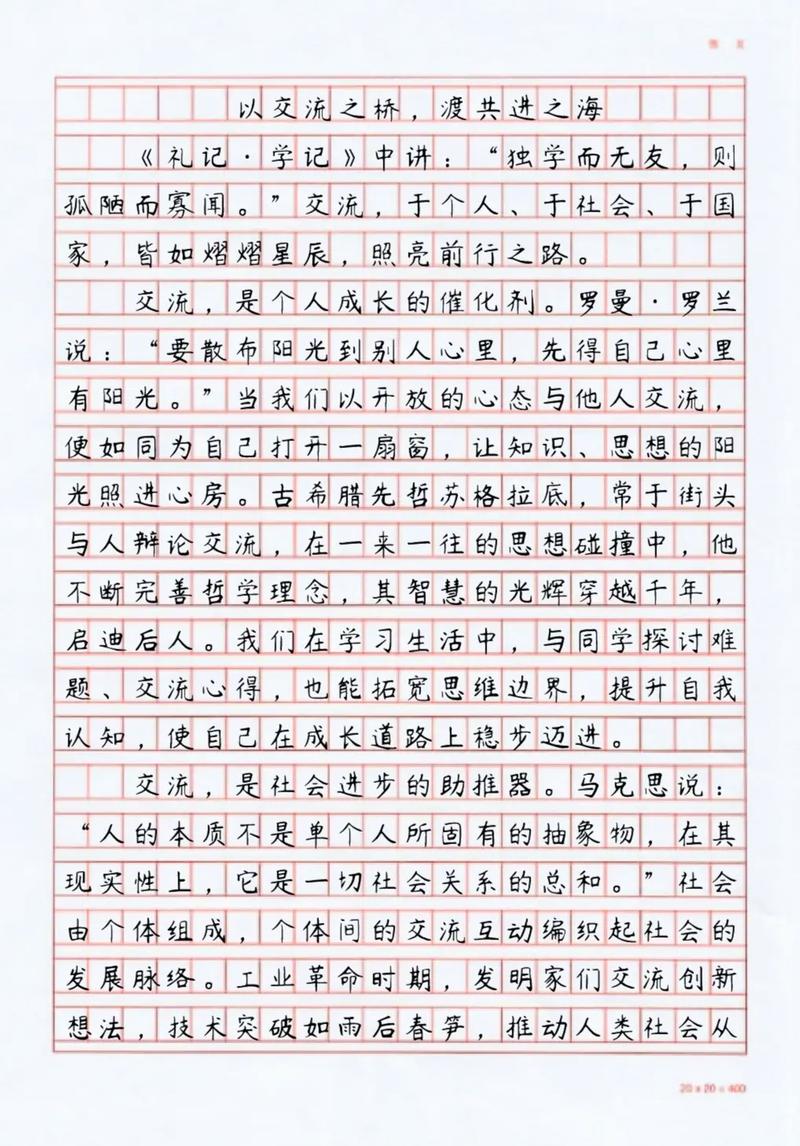 以交流之桥，渡共进之海
《礼记·学记》中讲：“独学而无友，则
孤陋而寡闻。”交流，于个人、于社会、于国
家，皆如熠熠星辰，照亮前行之路。
交流，是个人成长的催化剂。罗曼·罗兰
说：“要散布阳光到别人心里，先得自己心里
有阳光。”当我们以开放的心态与他人交流，
便如同为自己打开一扇窗，让知识、思想的阳
光照进心房。古希腊先哲苏格拉底，常于街头
与人辩论交流，在一来一往的思想碰撞中，他
不断完善哲学理念，其智慧的光辉穿越千年，
启迪后人。我们在学习生活中，与同学探讨难
题、交流心得，也能拓宽思维边界，提升自我
认知，使自己在成长道路上稳步迈进。
交流，是社会进步的助推器。马克思说：
“人的本质不是单个人所固有的抽象物，在其
现实性上，它是一切社会关系的总和。”社会
由个体组成，个体间的交流互动编织起社会的
发展脉络。工业革命时期，发明家们交流创新
想法，技术突破如雨后春笋，推动人类社会从
20×20=400